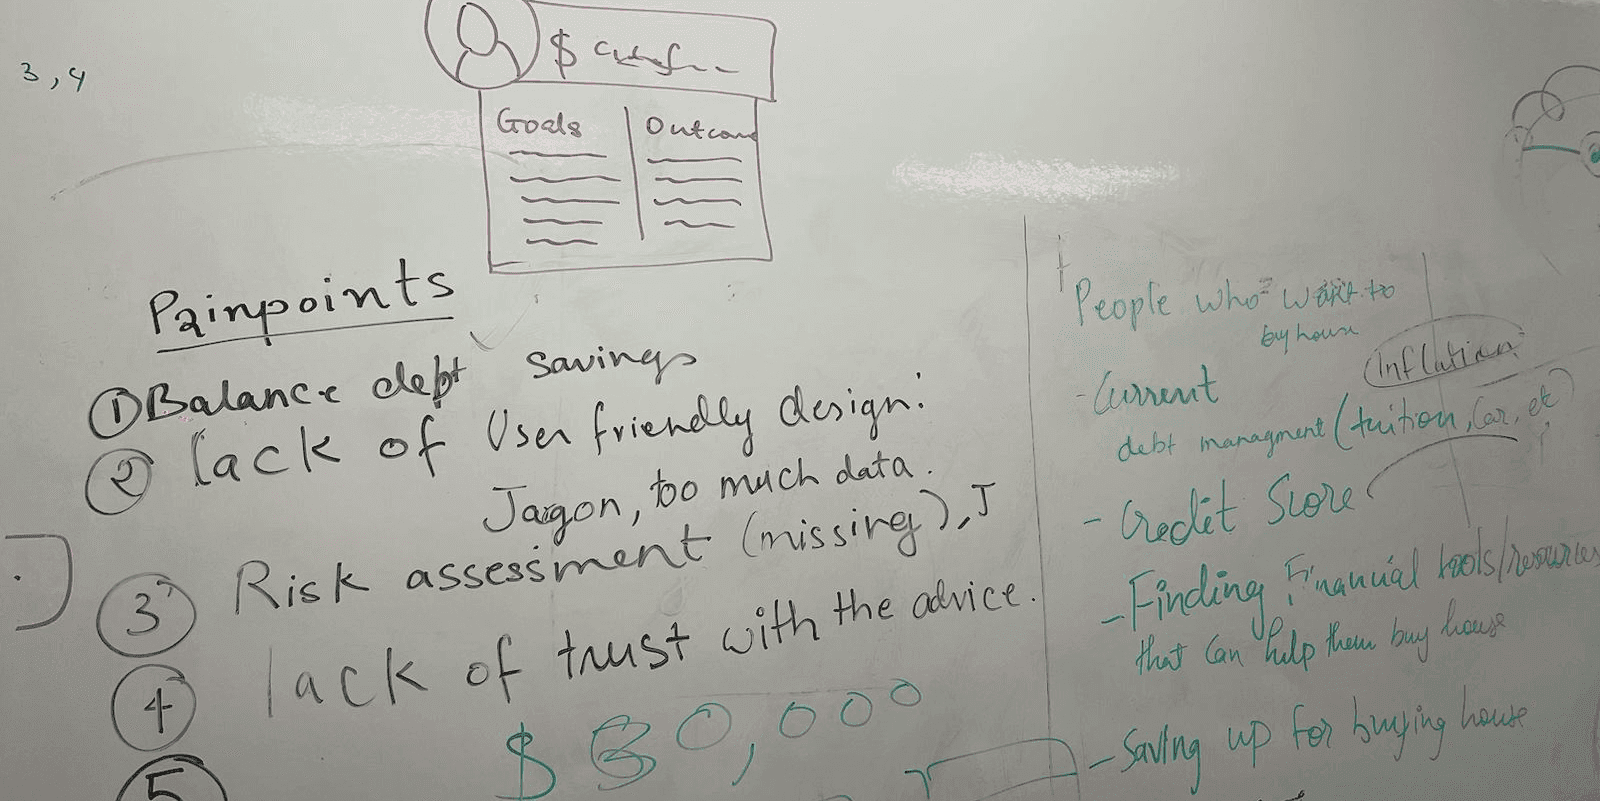 3,4
$
Goals
Outcome
Painpoints
① Balance debt savings
② lack of User friendly design:
Jargon, too much data.
③ Risk assessment (missing), J
④ lack of trust with the advice.
5
$ 30,000
People who want to
buy house
Inflation
- Current
debt managment (tuition, Car, etc)
- Credit Score
- Finding Financial tools/resources
that can help them buy house
- Saving up for buying house